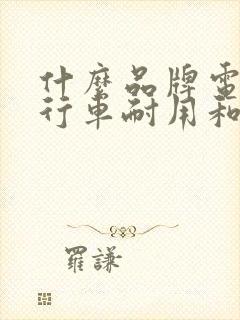 什麼品牌電
行車耐用和
羅謙